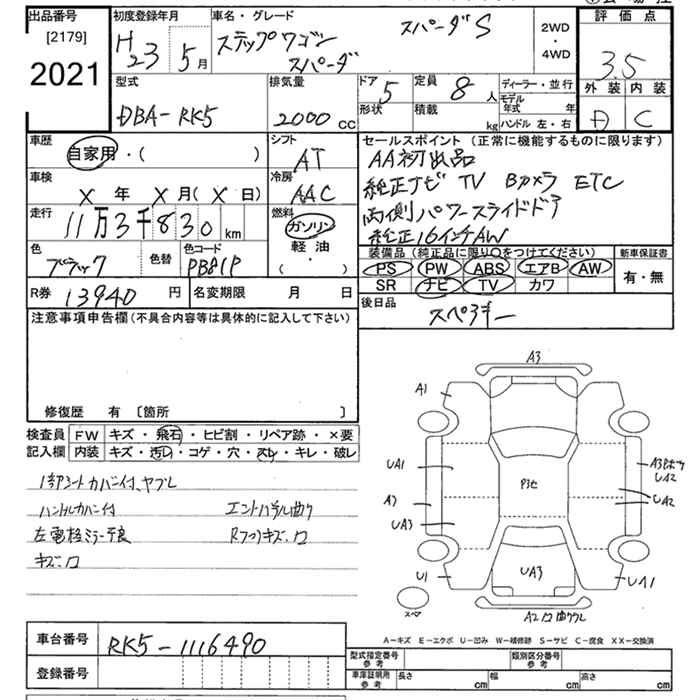 出品番号 初度登録年月 車名・グレード 評価点
[2179] H23 5月 ステップワゴン スパーダS 2WD
2021 スパーダ ・4WD 3.5
型式 排気量 ドア 5 定員 8人 ディーラー・並行 外装 内装
DBA-RK5 2000cc 形状 積載 kg モデル年式 年 C
ハンドル 左・右
車歴 自家用・( ) シフト AT セールスポイント(正常に機能するものに限ります)
車検 X年 X月(X日) 冷房 AAC AA初出品
走行 11万3千830km 燃料 ガソリン 純正ナビ TV Bカメラ ETC
軽油 両側パワースライドドア
・( ) 純正16インチAW
色 ブラック 色替 色コード PB81P 装備品(純正品に限り○をつけてください) 新車保証書
PS PW ABS エアB AW 有・無
SR ナビ TV カワ
R券 13940円 名変期限 月 日 後日品 スペアキー
注意事項申告欄(不具合内容等は具体的に記入して下さい)
修復歴 有 〔箇所 〕
検査員 FW キズ・飛石・ヒビ割・リペア跡・×要
記入欄 内装 キズ・汚レ・コゲ・穴・スレ・キレ・破レ
A3
A1
UA1 P3セ UA2
A2 UA2
UA3
U1 UA3 UA1
スペア A2
ハンドルカバー付
左電格ミラー不良
キズ、凹
A-キズ E-エクボ U-凹み W-補修跡 S-サビ C-腐食 XX-交換済
車台番号 RK5-1116490
型式指定番号 参考 類別区分番号 参考
登録番号 車庫証明用 参考 長さ cm 幅 cm 高さ cm